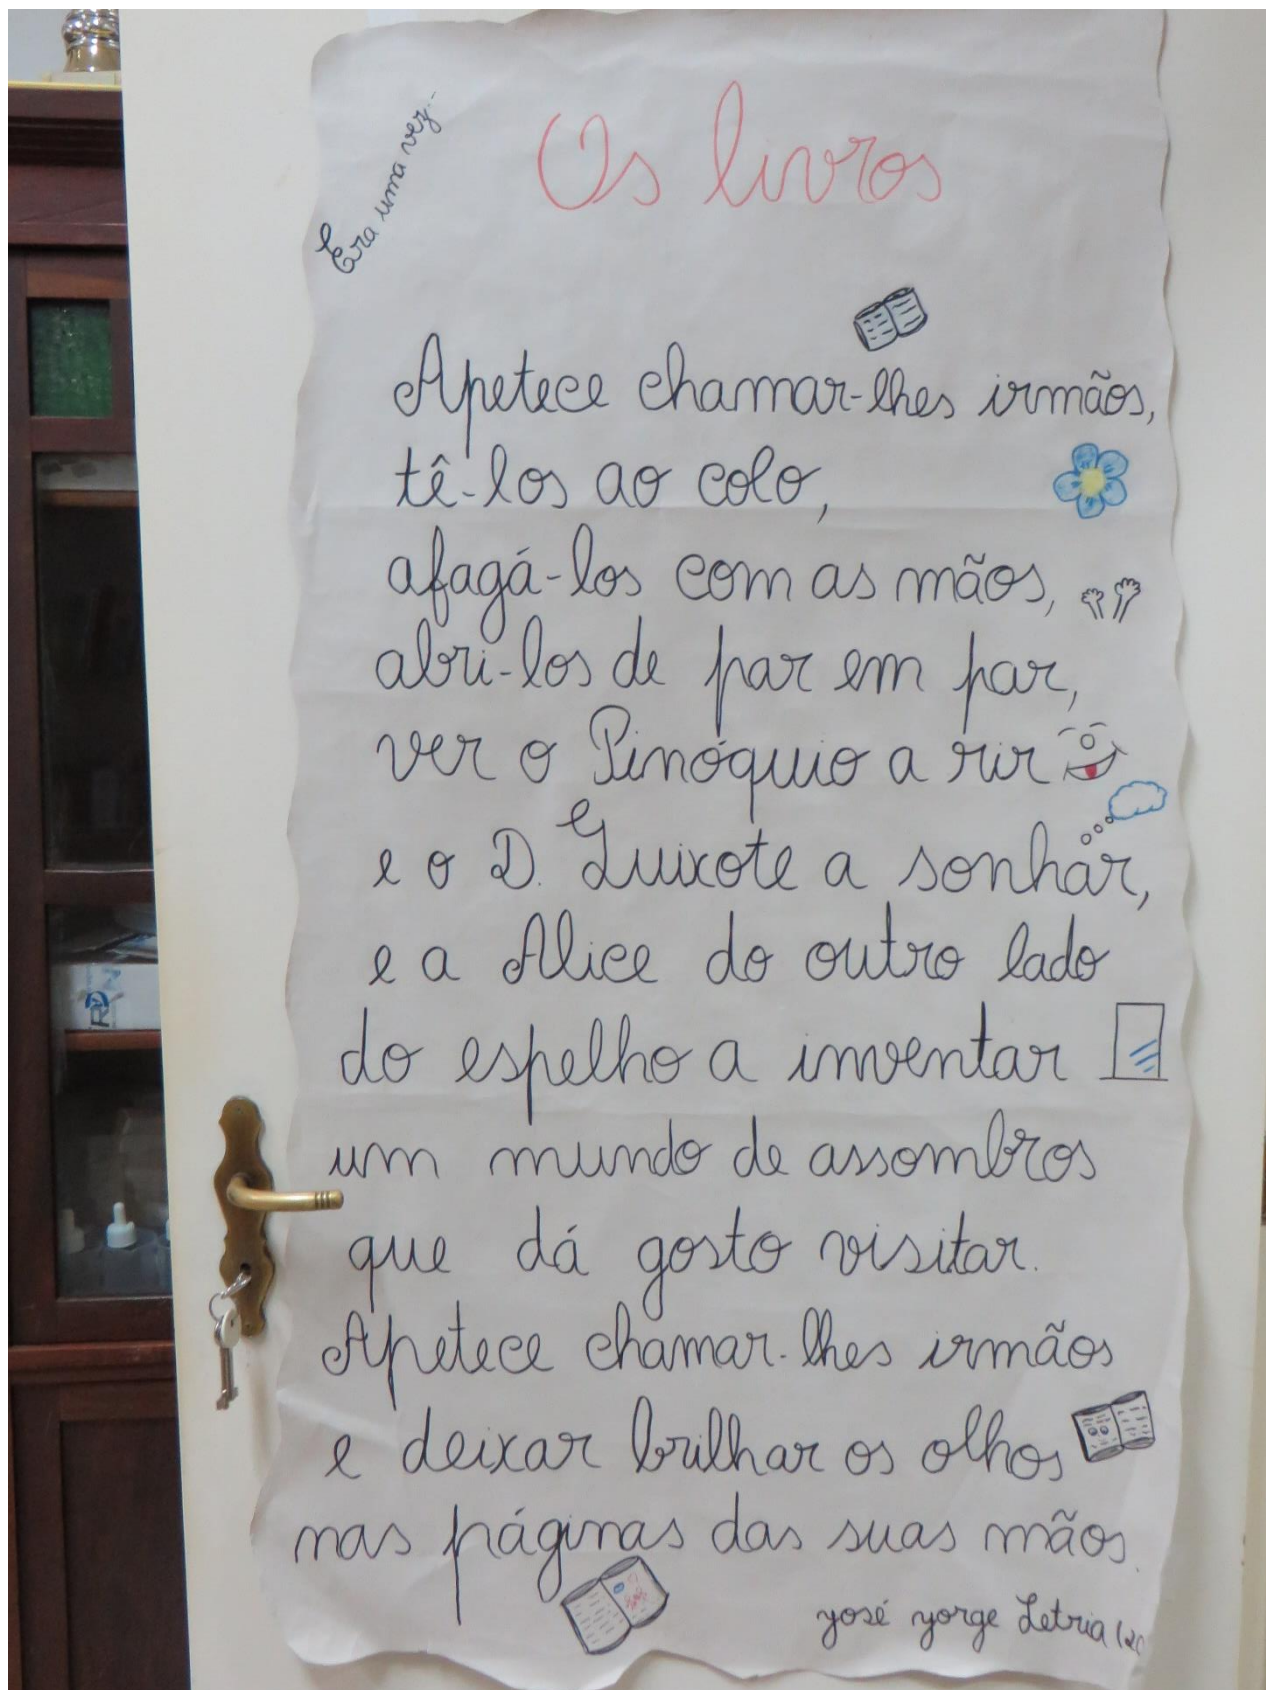 Era uma vez...
Os livros
Apetece chamar-lhes irmãos,
tê-los ao colo,
afagá-los com as mãos,
abri-los de par em par,
ver o Pinóquio a rir
e o D. Quixote a sonhar,
e a Alice do outro lado
do espelho a inventar
um mundo de assombros
que dá gosto visitar.
Apetece chamar-lhes irmãos
e deixar brilhar os olhos
nas páginas das suas mãos.
José Jorge Letria (20